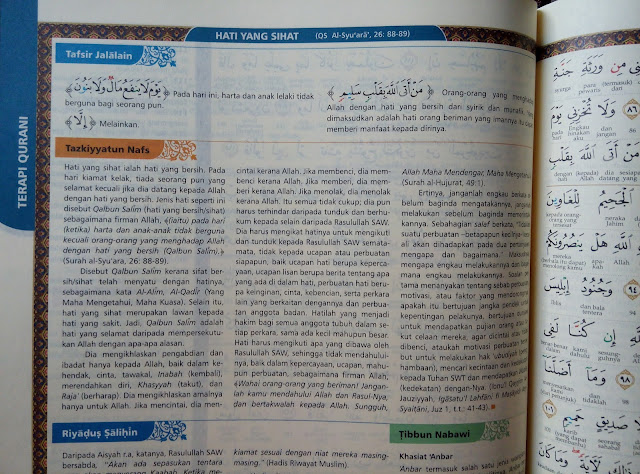 TERAPI QURANI
HATI YANG SIHAT (QS Al-Syu'arā', 26: 88-89)
Tafsir Jalālain
﴿يَوْمَ لَا يَنفَعُ مَالٌ وَلَا بَنُونَ﴾ Pada hari ini, harta dan anak lelaki tidak
berguna bagi seorang pun.
﴿إِلَّا﴾ Melainkan.
﴿مَنْ أَتَى اللَّهَ بِقَلْبٍ سَلِيمٍ﴾ Orang-orang yang menghadap
Allah dengan hati yang bersih dari syirik dan munafik. Yang
dimaksudkan adalah hati orang beriman yang imannya itu dapat
memberi manfaat kepada dirinya.
Tazkiyyatun Nafs
Hati yang sihat ialah hati yang bersih. Pada
hari kiamat kelak, tiada seorang pun yang
selamat kecuali jika dia datang kepada Allah
dengan hati yang bersih. Jenis hati seperti ini
disebut Qalbun Salīm (hati yang bersih/sihat)
sebagaimana firman Allah, (Iaitu) pada hari
(ketika) harta dan anak-anak tidak berguna
kecuali orang-orang yang menghadap Allah
dengan hati yang bersih (Qalbun Salīm).
(Surah al-Syu'ara, 26: 88-89).
Disebut Qalbun Salīm kerana sifat ber-
sih/sihat telah menyatu dengan hatinya,
sebagaimana kata Al-Alīm, Al-Qadīr (Yang
Maha Mengetahui, Maha Kuasa). Selain itu,
hati yang sihat merupakan lawan kepada
hati yang sakit. Jadi, Qalbun Salīm adalah
hati yang selamat daripada mempersekutu-
kan Allah dengan apa-apa alasan.
Dia mengikhlaskan pengabdian dan
ibadat hanya kepada Allah, baik dalam ke-
hendak, cinta, tawakal, Inabah (kembali),
merendahkan diri, Khasyyah (takut), dan
Raja' (berharap). Dia mengikhlaskan amalnya
hanya untuk Allah. Jika mencintai, dia men-
cintai kerana Allah. Jika membenci, dia mem-
benci kerana Allah. Jika memberi, dia mem-
beri kerana Allah. Jika menolak, dia menolak
kerana Allah. Itu semua tidak cukup; dia pun
harus terhindar daripada tunduk dan berhu-
kum kepada selain daripada Rasulullah SAW.
Dia harus mengikat hatinya untuk mengikuti
dan tunduk kepada Rasulullah SAW semata-
mata, tidak kepada ucapan atau perbuatan
siapapun, baik ucapan hati berupa keperca-
yaan, ucapan lisan berupa berita tentang apa
yang ada di dalam hati, perbuatan hati beru-
pa keinginan, cinta, kebencian, serta perkara
lain yang berkaitan dengannya dan perbua-
tan anggota badan. Hatilah yang menjadi
hakim bagi semua anggota tubuh dalam se-
tiap perkara, sama ada kecil mahupun besar.
Hati harus mengikuti apa yang dibawa oleh
Rasulullah SAW, sehingga tidak mendahului-
nya, baik dalam kepercayaan, ucapan, mahu-
pun perbuatan, sebagaimana firman Allah,
«Wahai orang-orang yang beriman! Jangan-
lah kamu mendahului Allah dan Rasul-Nya,
dan bertakwalah kepada Allah. Sungguh,
Allah Maha Mendengar, Maha Mengetahui.
(Surah al-Hujurat, 49:1).
Ertinya, janganlah engkau berkata
belum baginda mengatakannya, janganlah
melakukan sebelum baginda memerintah-
kannya. Sebahagian salaf berkata, "Tidaklah
suatu perbuatan –betapapun kecilnya– kecu-
ali akan dihadapkan pada dua pertanyaan:
mengapa dan bagaimana." Maksudnya,
mengapa engkau melakukannya dan bagai-
mana engkau melakukannya. Soalan per-
tama menanyakan tentang sebab perbuatan,
motivasi, atau faktor yang mendorongnya,
apakah itu bertujuan jangka pendek untuk
kepentingan pelakunya, bertujuan duniawi
untuk mendapatkan pujian orang atau ta-
kut celaan mereka, agar dicintai atau tidak
dibenci, ataukah motivasi perbuatan terse-
but untuk melakukan hak 'ubudiyah (peng-
hambaan), mencari kecintaan dan kedekatan
kepada Tuhan SWT dan mendapatkan wasilah
(kedekatan) dengan-Nya. (Ibnul Qayyim al-
Jauziyyah, Igāṡatul Lahfān fī Maṣāyidisy
Syaiṭāni, Juz 1, t.t.: 41-43).
Riyāḍuṣ Ṣāliḥīn
Daripada Aisyah r.a, katanya, Rasulullah SAW
bersabda, "Akan ada sepasukan tentara
kiamat sesuai dengan niat mereka masing-
masing." (Hadis Riwayat Muslim).
Ṭibbun Nabawi
Khasiat 'Anbar
'Anbar termasuk salah satu jenis
مِن وَرَثَةِ جَنَّةِ
وَلَا تُخْزِنِي يَوْمَ
مَنْ أَتَى اللَّهَ بِقَلْبٍ
الْجَحِيمُ لِلْغَاوِينَ
اللَّهِ هَلْ يَنصُرُونَكُمْ
وَجُنُودُ إِبْلِيسَ
إِن كُنَّا لَفِي
وَمَا أَضَلَّنَا
صَدِيقٍ حَمِيمٍ